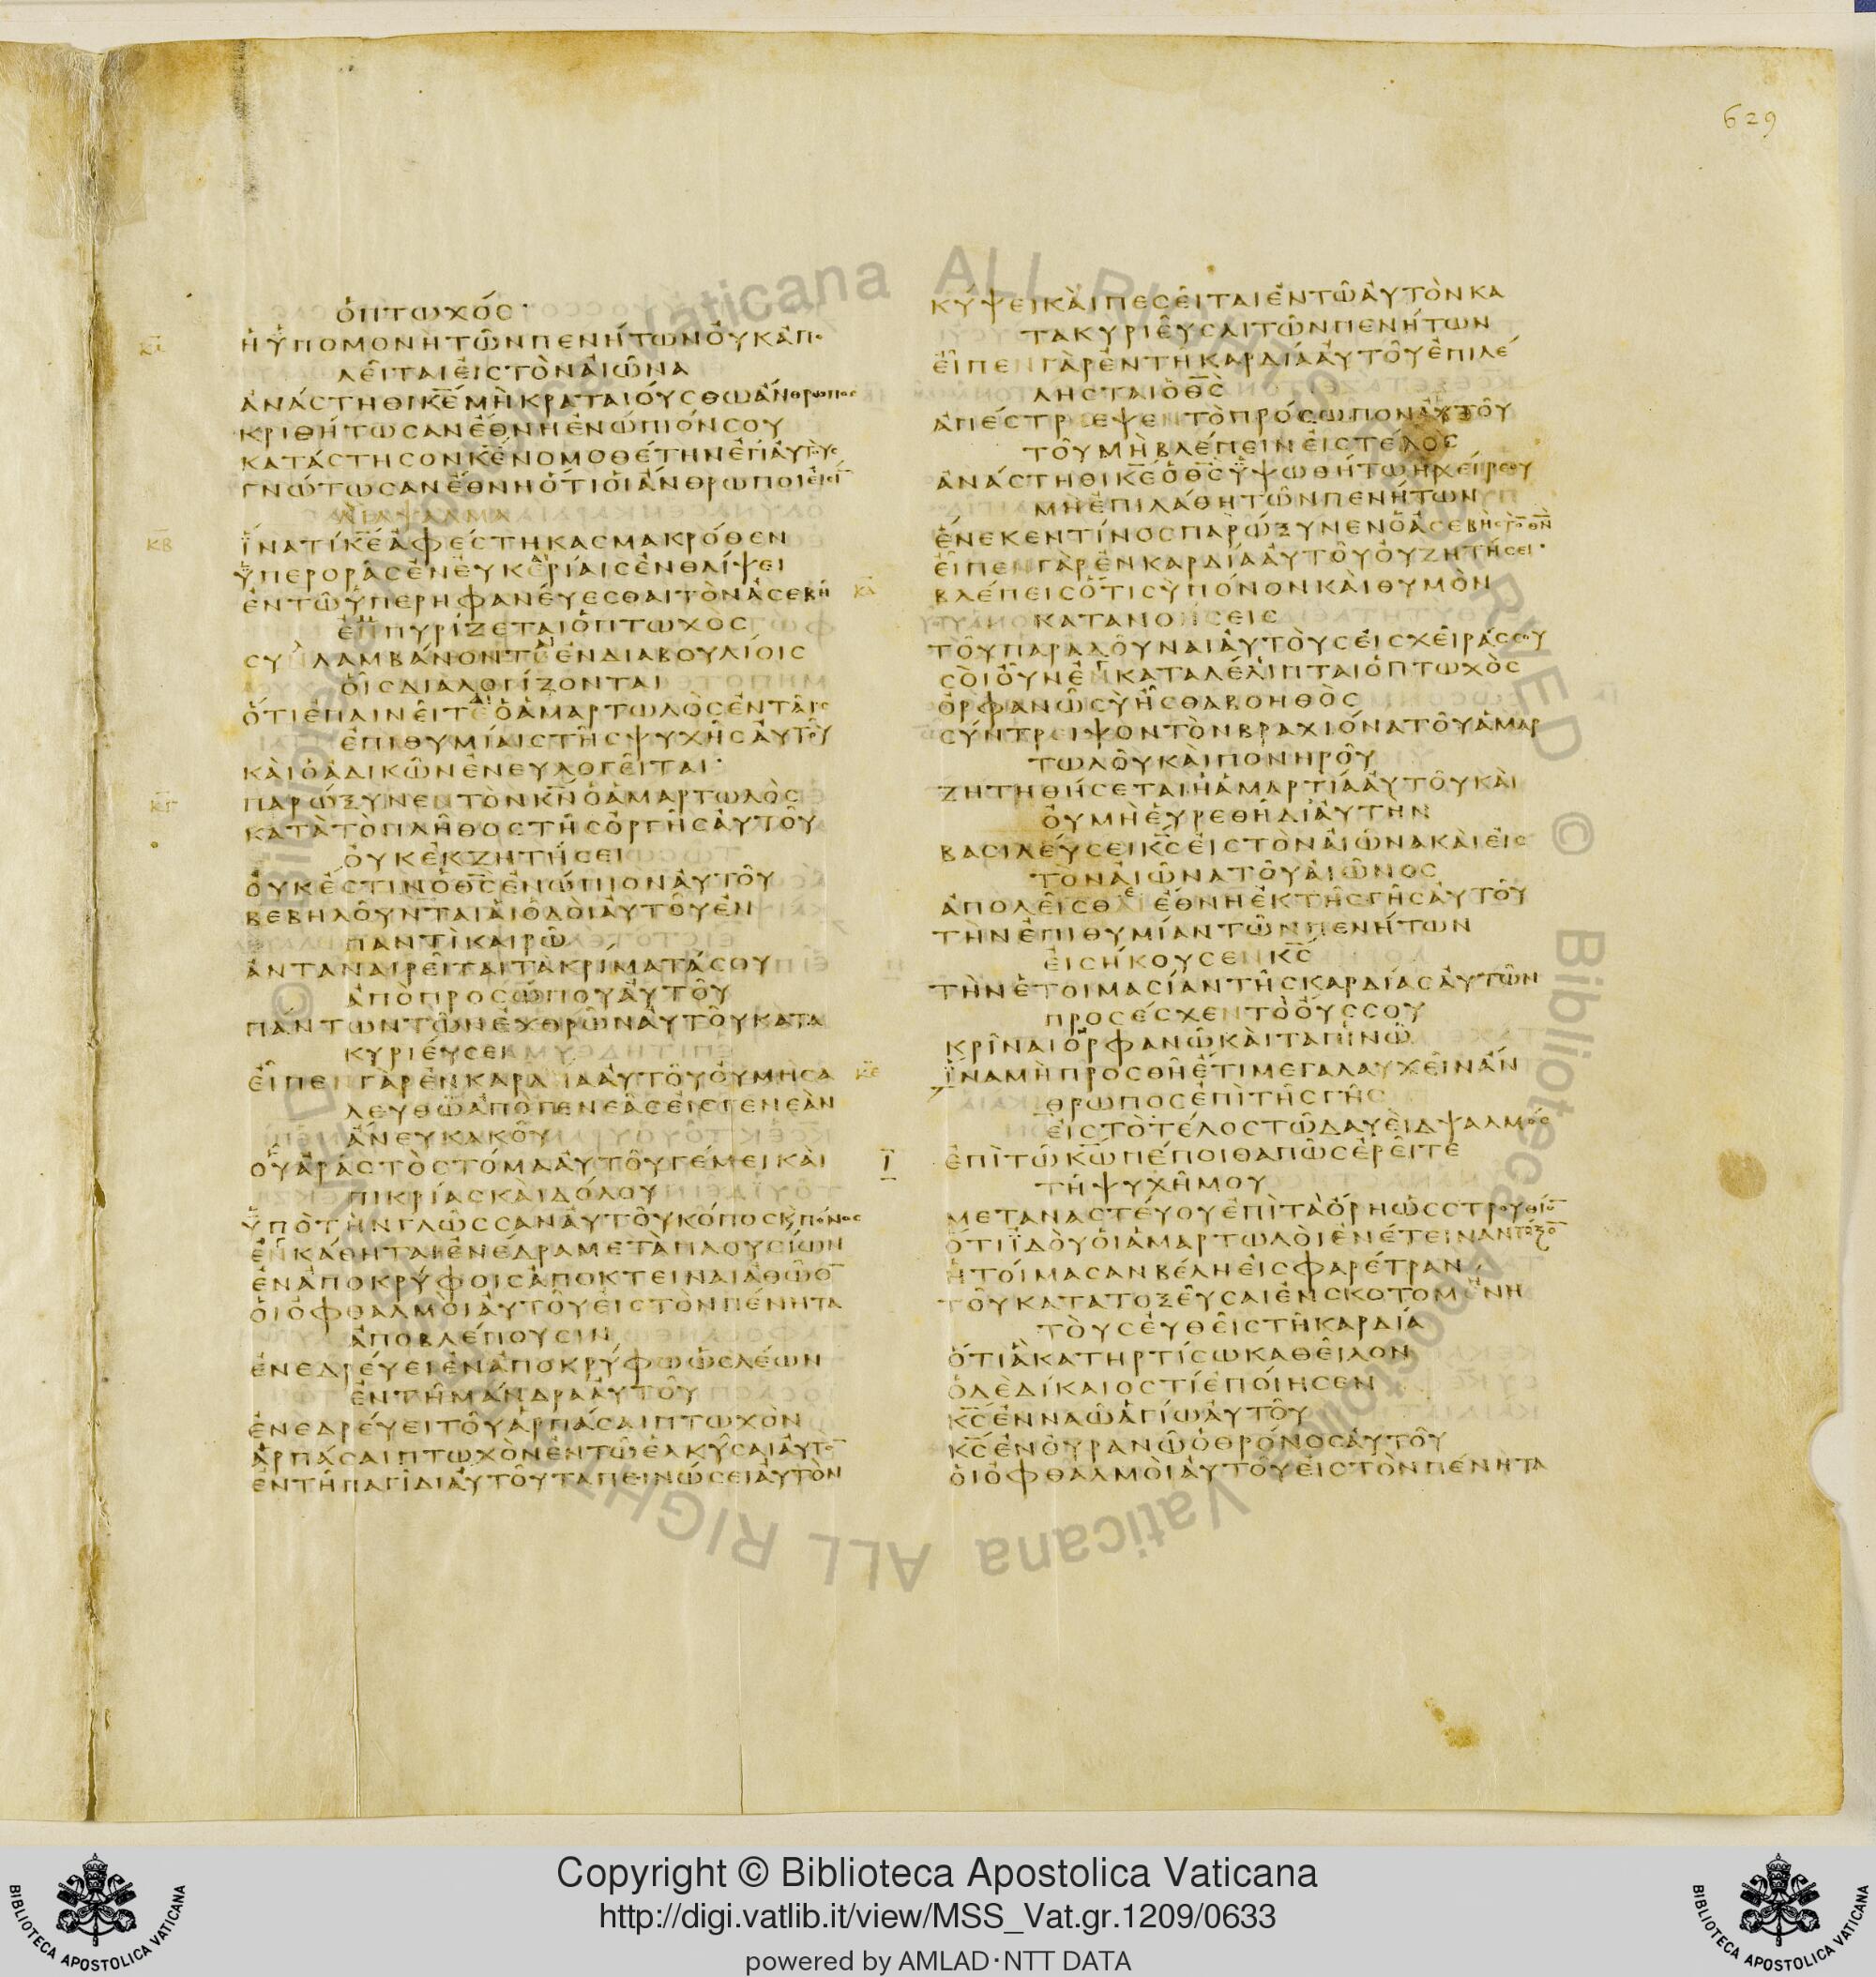 629
ὁπτωχός·
κα
ἡὑπομονὴτῶνπενήτωνὀυκἀπο
λεῖταιἐιςτὸναἰῶνα
ἀνάστηθικ̅ε̅μὴκραταιούσθωἄνθρωπος
κριθήτωσανἔθνηἐνώπιόνσου
κατάστησονκ̅ε̅νομοθέτηνἐπἀυτούς
γνώτωσανἔθνηὅτιὁιἄνθρωποιἐισι̅
διαψαλμα
κβ
ἵνατίκ̅ε̅ἀφέστηκασμακρόθεν
ὑπερορᾷςἐνἐυκαιρίαιςἐνθλίψει
ἐντῶὑπερηφανέυεσθαιτὸνἀσεβῆ
ἐμπυρίζεταιὁπτωχος
συλλαμβάνονταιἐνδιαβουλίοις
ὁῖςδιαλογίζονται
ὅτιἐπαινεῖταιὁἁμαρτωλὸςἐνταῖς
ἐπιθυμίαιςτῆςψυχῆςἀυτοῦ
κὰιὁἀδικῶνἐνευλογεῖται·
κγ
παρώξυνεντὸνκ̅ν̅ὁἁμαρτωλὸς
κατὰτὸπλῆθοςτῆςὀργῆςἀυτοῦ
ὀυκἐκζητήσει
ὀυκἔστινὁθ̅ς̅ἐνώπιονἀυτοῦ
βεβηλοῦνταιἁιὁδὸιἀυτοῦἐν
παντὶκαιρῶ
ἀνταναιρεῖταιτὰκρίματάσου
ἀπὸπροσώπουἀυτοῦ
πάντωντῶνἐχθρῶνἀυτοῦκατα
κυριέυσει
ἐῖπενγὰρἐνκαρδίαἀυτοῦὀυμὴσα
λευθῶἀπὸγενεᾶςἐιςγενεὰν
ἄνευκακοῦ
οὗἀρᾶςτὸστόμαἀυτοῦγέμεικὰι
πικρίαςκὰιδόλου
ὑπὸτὴνγλῶσσανἀυτοῦκόποςκ̀πόνος
ἐγκάθηταιἐνέδραμετὰπλουσίων
ἐναποκρύφοιςἀποκτεῖναιἀθῶο̅
ὁιὀφθαλμὸιἀυτοῦἐιςτὸνπένητα
ἀποβλέπουσιν
ἐνεδρέυειἐναποκρύφωὡςλέων
ἐντῆμάνδραἀυτοῦ
ἐνεδρέυειτοῦἁρπάσαιπτωχὸν
ἁρπάσαιπτωχὸνἐντῶἑλκύσαιἀυτο̅
ἐντῆπαγίδιἀυτοῦταπεινώσειἀυτὸν
κύψεικὰιπεσεῖταιἐντῶἀυτὸνκα
τακυριεῦσαιτῶνπενήτων
ἐῖπενγὰρἐντῆκαρδίαἀυτοῦἐπιλέ
λησταιὁθ̅ς̅
ἀπέστρεψεντὸπρόσωπονἀυτοῦ
τοῦμὴβλέπεινἐιςτέλος
ἀνάστηθικ̅ε̅ὁθ̅ς̅ὑψωθήτωἡχείρσου
μὴἐπιλάθητῶνπενήτων
ἕνεκεντίνοςπαρώξυνενὁἀσεβὴςτὸνθ̅ν̅
ἐῖπενγὰρἐνκαρδίαἀυτοῦὀυζητήσει·
κδ
βλέπειςὅτισὺπόνονκὰιθυμὸν
κατανοήσεις
τοῦπαραδοῦναιἀυτοὺςἐιςχεῖράςσου
σὸιὀῦνἐγκαταλέλιπταιὁπτωχὸς
ὀρφανῶσὺῆσθαβοηθὸς
σύντρειψοντὸνβραχιόνατοῦἁμαρ
τωλοῦκὰιπονηροῦ
ζητηθήσεταιἡἁμαρτίαἀυτοῦκὰι
ὀυμὴἑυρεθῆδιἀυτὴν
βασιλέυσεικ̅ς̅ἐιςτὸναἰῶνακὰιἐις
τὸναἰῶνατοῦαἰῶνος
ἀπολεῖσθεἔθνηἐκτῆςγῆςἀυτοῦ
τὴνἐπιθυμίαντῶνπενήτων
ἐισήκουσενκ̅ς̅
τὴνἑτοιμασίαντῆςκαρδίαςἀυτῶν
προσέσχεντὸὀῦςσου
κρῖναιὀρφανῶκὰιταπινῶ
κε
ἵναμὴπροσθῆἔτιμεγαλαυχεῖνἄν
θρωποςἐπὶτῆςγῆς
ἐιςτὸτέλοςτῶδαυὲιδψαλμός
ι̅
ἐπὶτῶκ̅ω̅πέποιθαπῶςἐρεῖτε
τῆψυχῆμου
μεταναστέυουἐπὶτὰὄρηὡςστρουθίο̅
ὅτιϊδοὺὁιἁμαρτωλὸιἐνέτεινὰντόξο̅
ἡτοίμασανβέληἐιςφαρέτραν
τοῦκατατοξεῦσαιἐνσκοτομήνη
τοὺςἐυθεῖςτῆκαρδία
ὅτιἃκατηρτίσωκαθεῖλον
ὁδὲδίκαιοςτίἐποίησεν
κ̅ς̅ἐνναῶἁγίωἀυτοῦ
κ̅ς̅ἐνὀυρανῶὁθρόνοςἀυτοῦ
ὁιὀφθαλμὸιἀυτοῦἐιςτὸνπένητα
Copyright © Biblioteca Apostolica Vaticana
http://digi.vatlib.it/view/MSS_Vat.gr.1209/0633
powered by AMLAD·NTT DATA
BIBLIOTECA APOSTOLICA VATICANA
BIBLIOTECA APOSTOLICA VATICANA